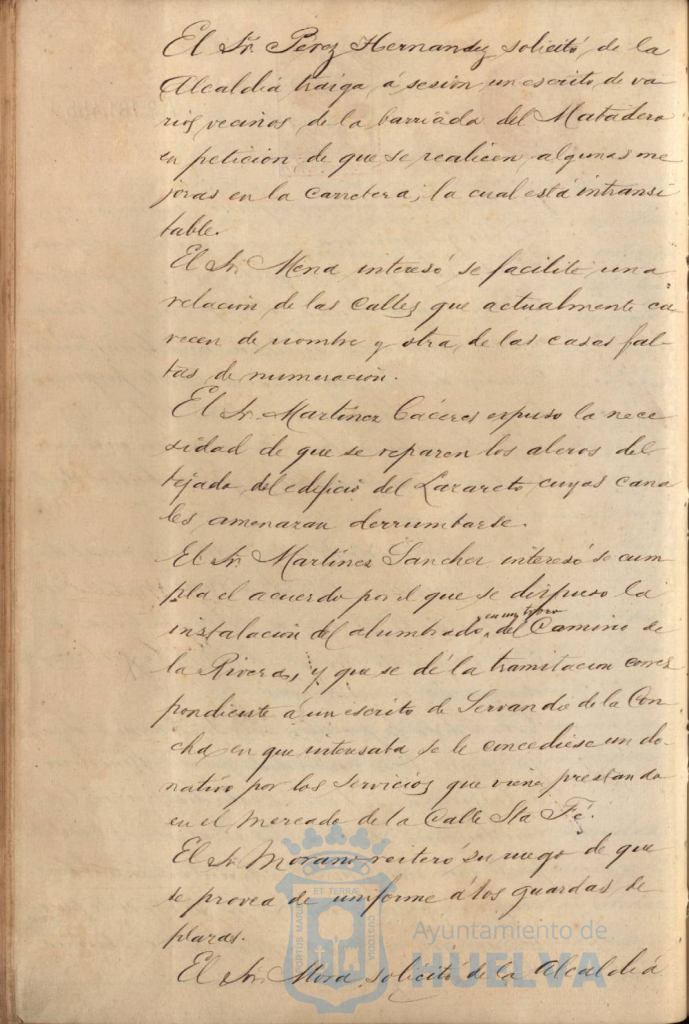 El Sr. Pérez Hernandez solicitó de la
Alcaldiá traiga á sesión un escrito de va
rios vecinos de la barriada del Matadero
en petición de que se realicen algunas me
joras en la carretera, la cual está intransi
table.
El Sr. Mena interesó se facilite una
relación de las calles que actualmente ca
recen de nombre y otra de las casas fal-
tas de numeración.
El Sr. Martínez Cáceres expuso la nece
sidad de que se reparen los aleros del
tejado del edificio del Lazareto cuyas cana
les amenazan derrumbarse.
El Sr. Martínez Sanchez interesó se cum
pla el acuerdo por el que se dispuso la
instalación del alumbrado en un trozo del Camino de
la Rivera, y que se dé la tramitacion corres
pondiente á un escrito de Servando de la Con
cha en que interesaba se le concediese un do-
nativo por los servicios que viene prestando
en el mercado de la Calle Sta Fé.
El Sr. Morano reiteró su ruego de que
se provea de uniforme á los guardas de
plazas.
El Sr. Mora solicitó de la Alcaldiá
PORTUS MARIS ET TERRAE CUSTODIA
Ayuntamiento de
HUELVA